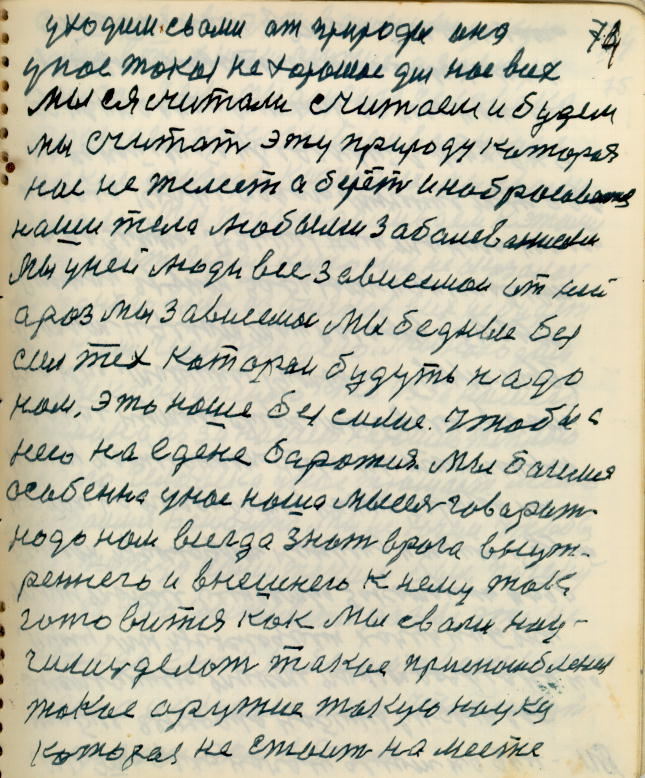 74
уходим свами от природы она
унас такая не хорошая для нас всех
Мы ея считали считаем и будем
мы считать эту природу которая
нас не жалеет а берёт и набрасывает
наши тела любыми заболеваниями
Мы уней люди все зависемаи от ней
араз мы зависемы мы бедные без
сил тех котораи будуть надо
нам, эть наше безсилие. Чтобы с
него на едене барожия. Мы боимся
особенна унас наша мысля говарит
надо нам всегда знат врага внут-
реннего и внешнего к нему так
готовится как мы свами нау-
чились делат такие приспособления
такое аружие такую науку
которая не стоит на месте